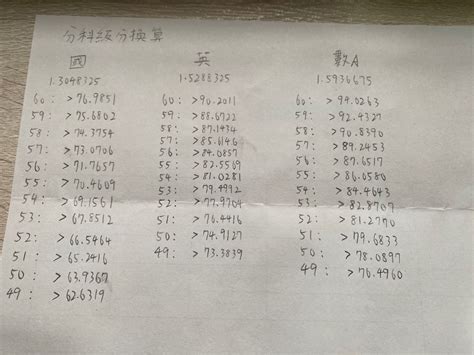 分科級分換算
國 英 數A
1.3048325 1.5288325 1.5936675
60: >76.9851 60: >90.2011 60: >94.0263
59: >75.6802 59: >88.6722 59: >92.4327
58: >74.3754 58: >87.1434 58: >90.8390
57: >73.0706 57: >85.6146 57: >89.2453
56: >71.7657 56: >84.0857 56: >87.6517
55: >70.4609 55: >82.5569 55: >86.0580
54: >69.1561 54: >81.0281 54: >84.4643
53: >67.8512 53: >79.4992 53: >82.8707
52: >66.5464 52: >77.9704 52: >81.2770
51: >65.2416 51: >76.4416 51: >79.6833
50: >63.9367 50: >74.9127 50: >78.0897
49: >62.6319 49: >73.3839 49: >76.4960